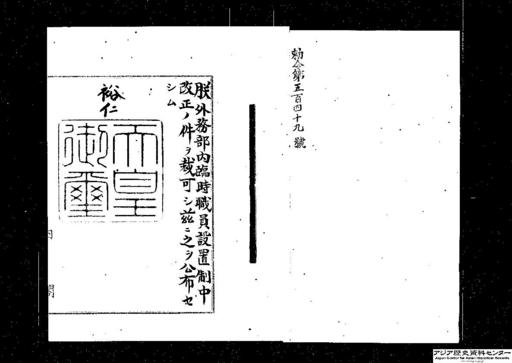 勅令第五百四十九號
朕外務部内臨時職員設置制中
改正ノ件ヲ裁可シ茲ニ之ヲ公布セ
シム
裕仁
天皇
御璽
アジア歴史資料センター
Japan Center for Asian Historical Records